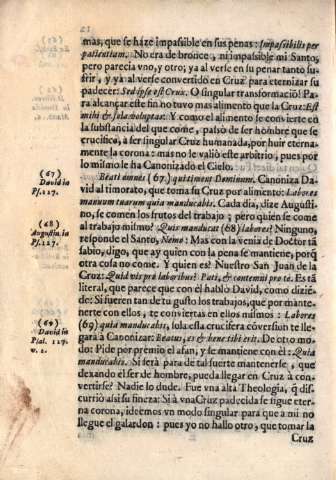 mas, que se haze impasible en sus penas: Impasibilis per
patientiam. No era de bronce, ni impasible mi Santo,
pero parecia vno, y otro; ya al verse en su penar tanto su-
frir, y ya al verse convertido en Cruz para eternizar su
padecer: Sed ipse est Crux. O singular transformacio! Pa-
ra alcançar este fin no tuvo mas alimento que la Cruz: Est
mihi & sola voluptas: Y como el alimento se convierte en
la substancia del que come, pasò de ser hombre que se
crucifica, a ser singular Cruz humanada, por huir eterna-
mente la corona: mas no le valiò este arbitrio, pues por
lo mismo le ha Canonizado el Cielo.
(67)
David in
Ps. 127.
Beati omnes (67) qui timent Dominum. Canoniza Da-
vid al timorato, que toma su Cruz por alimento: Labores
manuum tuarum quia manducabis. Cada dia, dize Augusti-
no, se comen los frutos del trabajo; pero quien se come
al trabajo mismo? Quis manducat (68) labores? Ninguno,
(68)
Augustin. in
Ps. 127.
responde el Santo, Nemo: Mas con la venia de Doctor tã
sabio, digo, que ay quien con la pena se mantiene, porq̃
otra cosa no come. Y quien es? Nuestro San Juan de la
Cruz: Quid vis prò laboribus? Pati, & contemni pro te. Es tã
literal, que parece que con èl hablò David, como dizié-
do: Si fueren tan de tu gusto los trabajos, que por mante-
nerte con ellos, te conviertas en ellos mismos: Labores
(69)
David in
Psal. 127.
v. 2.
(69) quia manducabis, sola esta crucifera cõversiun te llega-
rà a Canonizar: Beatus, es & bene tibi erit. De otro mo-
do: Pide por premio el afan, y se mantiene con èl: Quia
manducabis. Si serà para de tal suerte mantenerse, que
dexando èl ser de hombre, pueda llegar en Cruz à con-
vertirse? Nadie lo dude. Fue vna alta Theologia, q̃ dis-
curriò asi su fineza: Si à vna Cruz padecida se sigue eter-
na corona, ideemos vn modo singular para que a mi no
llegue el galardon: pues yo no hallo otro, que tomar la
Cruz